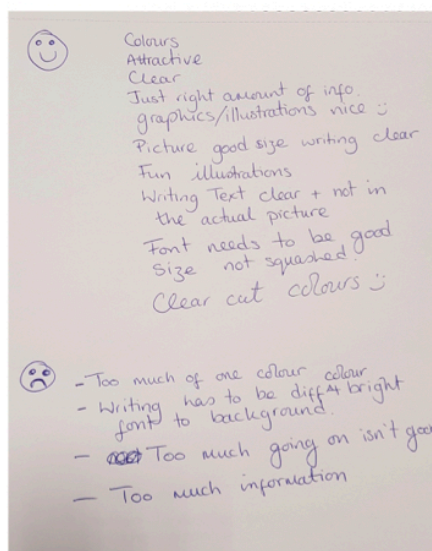 Colours
Attractive
Clear
Just right amount of info.
graphics/illustrations nice :)
Picture good size writing clear
Fun illustrations
Writing Text clear + not in
the actual picture
Font needs to be good
size not squashed.
Clear cut colours :)
- Too much of one colour colour
- Writing has to be diff^nt bright
font to background.
- Too much going on isn't good
- Too much information